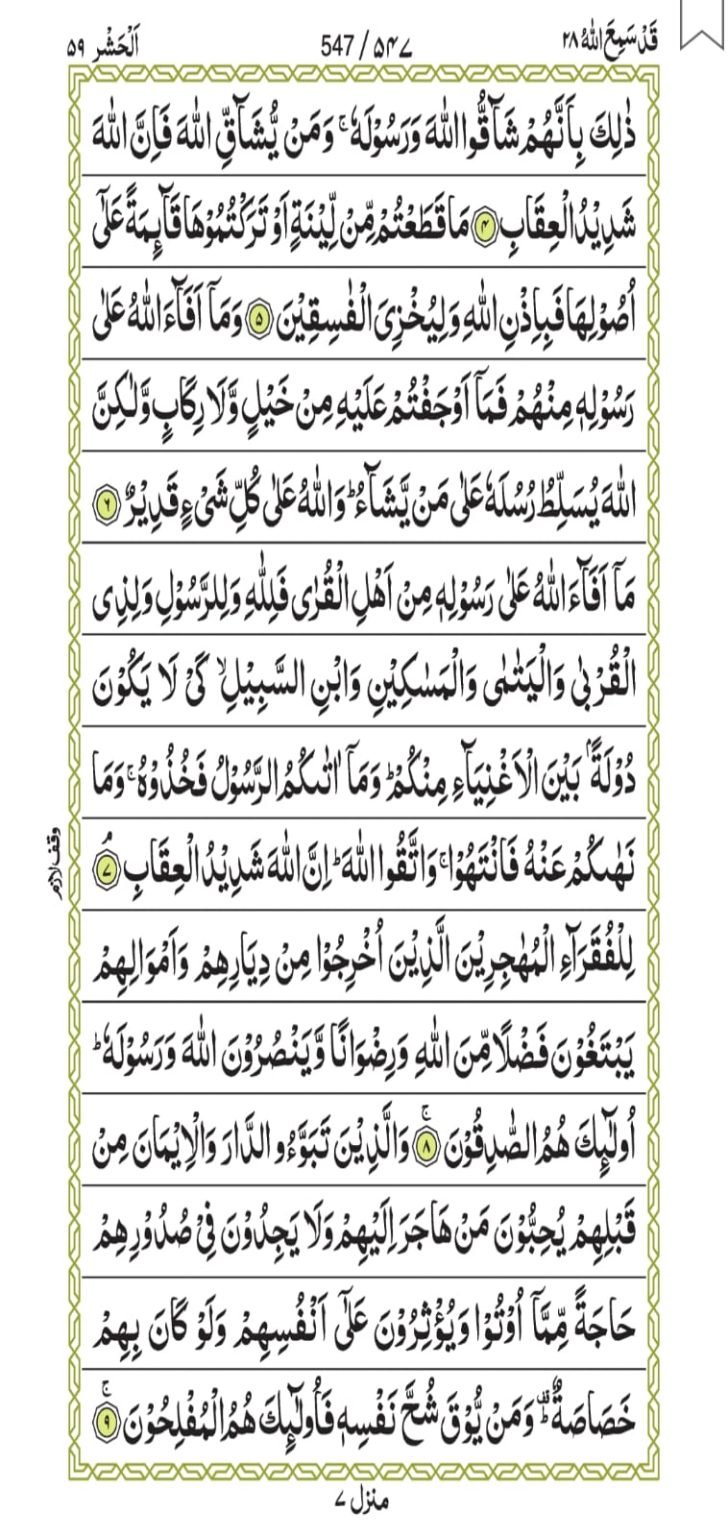 قَدْ سَمِعَ اللهُ ٢٨
547 / ۵۴۷
اَلْحَشْر ۵۹
ذٰلِكَ بِاَنَّهُمْ شَآقُّوا اللهَ وَرَسُوْلَهٗ ۚ وَمَنْ يُّشَآقِّ اللهَ فَاِنَّ اللهَ
شَدِيْدُ الْعِقَابِ ﴿۴﴾ مَا قَطَعْتُمْ مِّنْ لِّيْنَةٍ اَوْ تَرَكْتُمُوْهَا قَآئِمَةً عَلٰٓى
اُصُوْلِهَا فَبِاِذْنِ اللهِ وَلِيُخْزِىَ الْفٰسِقِيْنَ ﴿۵﴾ وَمَآ اَفَآءَ اللهُ عَلٰى
رَسُوْلِهٖ مِنْهُمْ فَمَآ اَوْجَفْتُمْ عَلَيْهِ مِنْ خَيْلٍ وَّلَا رِكَابٍ وَّلٰكِنَّ
اللهَ يُسَلِّطُ رُسُلَهٗ عَلٰى مَنْ يَّشَآءُ ؕ وَاللهُ عَلٰى كُلِّ شَىْءٍ قَدِيْرٌ ﴿۶﴾
مَآ اَفَآءَ اللهُ عَلٰى رَسُوْلِهٖ مِنْ اَهْلِ الْقُرٰى فَلِلّٰهِ وَلِلرَّسُوْلِ وَلِذِى
الْقُرْبٰى وَالْيَتٰمٰى وَالْمَسٰكِيْنِ وَابْنِ السَّبِيْلِ ۙ كَىْ لَا يَكُوْنَ
دُوْلَةًۢ بَيْنَ الْاَغْنِيَآءِ مِنْكُمْ ؕ وَمَآ اٰتٰىكُمُ الرَّسُوْلُ فَخُذُوْهُ ۚ وَمَا
نَهٰىكُمْ عَنْهُ فَانْتَهُوْا ۚ وَاتَّقُوا اللهَ ؕ اِنَّ اللهَ شَدِيْدُ الْعِقَابِ ۘ ﴿۷﴾
وقف لازم
لِلْفُقَرَآءِ الْمُهٰجِرِيْنَ الَّذِيْنَ اُخْرِجُوْا مِنْ دِيَارِهِمْ وَاَمْوَالِهِمْ
يَبْتَغُوْنَ فَضْلًا مِّنَ اللهِ وَرِضْوَانًا وَّيَنْصُرُوْنَ اللهَ وَرَسُوْلَهٗ ؕ
اُولٰٓئِكَ هُمُ الصّٰدِقُوْنَ ۚ ﴿۸﴾ وَالَّذِيْنَ تَبَوَّءُو الدَّارَ وَالْاِيْمَانَ مِنْ
قَبْلِهِمْ يُحِبُّوْنَ مَنْ هَاجَرَ اِلَيْهِمْ وَلَا يَجِدُوْنَ فِىْ صُدُوْرِهِمْ
حَاجَةً مِّمَّآ اُوْتُوْا وَيُؤْثِرُوْنَ عَلٰٓى اَنْفُسِهِمْ وَلَوْ كَانَ بِهِمْ
خَصَاصَةٌ ؕ قف وَمَنْ يُّوْقَ شُحَّ نَفْسِهٖ فَاُولٰٓئِكَ هُمُ الْمُفْلِحُوْنَ ۚ ﴿۹﴾
منزل ۷